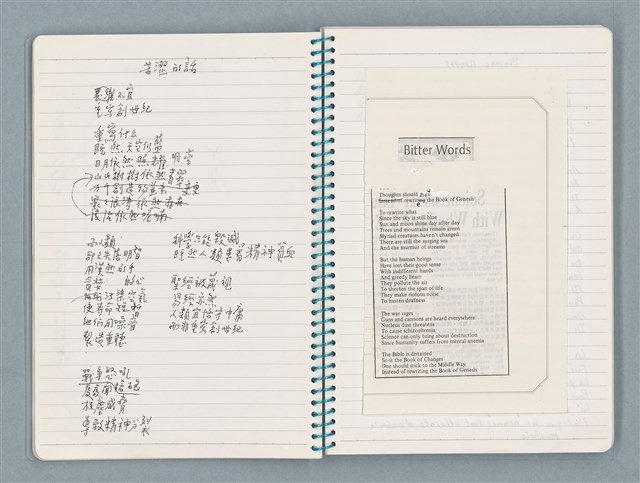 苦澀的話
重寫什么
既然天空仍藍
日月依然照耀
山山樹樹依然青翠
而人類
科學只能毀滅
既然人類患著精神貧血
聖經被蔑視
易經亦然
人類宜恪守中庸
而非重寫創世紀
使壽命短暫
他們用噪音
製造重聽
戰爭怒吼
核塵威脅
導致精神分裂
Bitter Words
Thoughts should not
Instead of rewriting the Book of Genesis
To rewrite what
Since the sky is still blue
Sun and moon shine day after day
Trees and mountains remain green
Myriad creatures haven't changed
There are still the surging sea
And the murmur of streams
But the human beings
Have lost their good sense
With indifferent hands
And greedy heart
They pollute the air
To shorten the span of life
They make riotous noise
To hasten deafness
The war rages
Guns and cannons are heard everywhere
Nuclear dust threatens
To cause schizophrenia
Science can only bring about destruction
Since humanity suffers from mental anemia
The Bible is disdained
So is the Book of Changes
One should stick to the Middle Way
Instead of rewriting the Book of Genesis